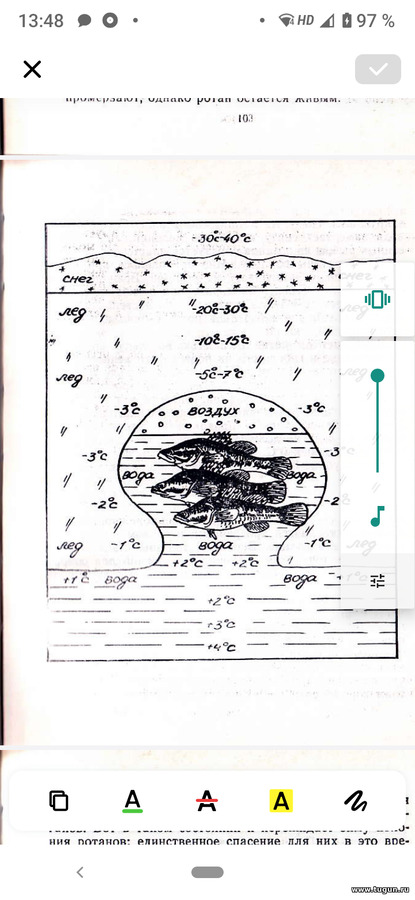 13:48 HD 97 %
промерзают, однако ротан остается живым.
103
-30°-40°с
снег
лед -20°-30°с
-10°-15°с
лед -5°с-7°с
-3°с воздух -3°с
-3°с -3
вода вода
-2°с -2
лед -1°с вода -1°с лед
+2°с +2°с
+1°с вода вода
+2°с
+3°с
+4°с
A A A
ния ротанов: единственное спасение для них в это вре-
www.tugun.ru